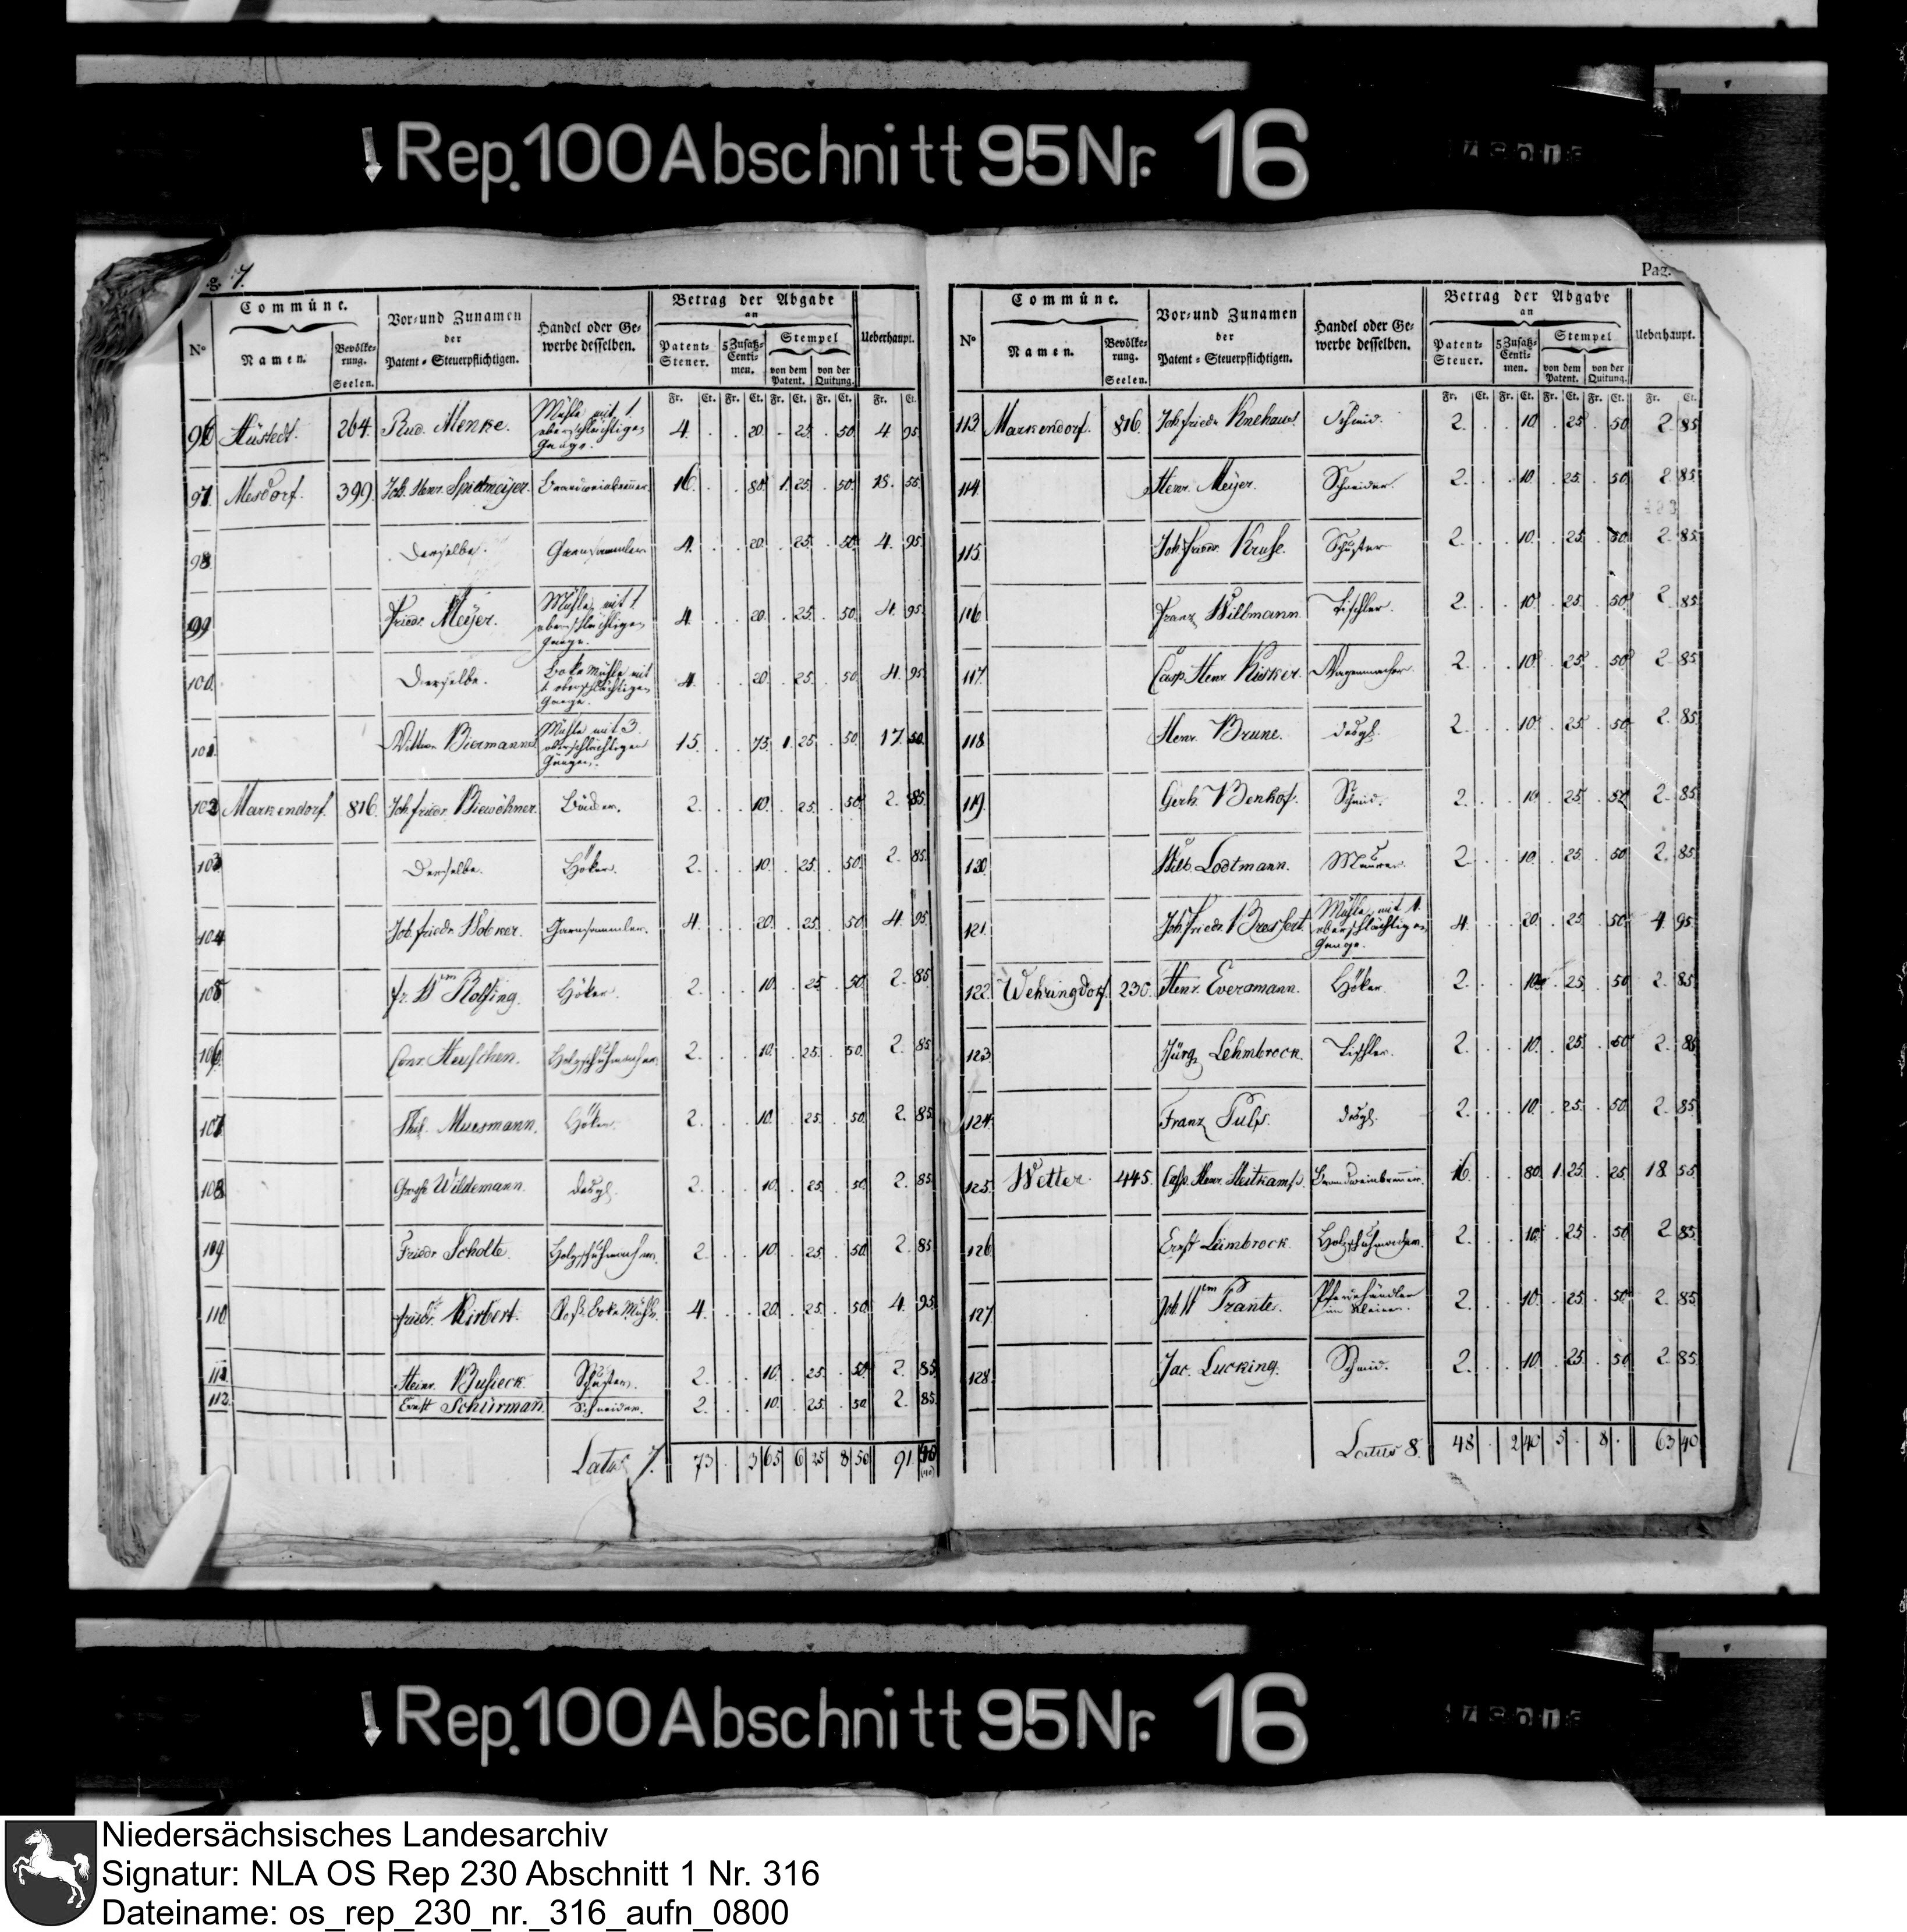 Rep. 100 Abschnitt 95 Nr. 16
g. 7.
Commüne. Vor- und Zunamen der Patent-Steuerpflichtigen. Handel oder Gewerbe desselben. Betrag der Abgabe an Ueberhaupt.
No Namen. Bevölkerung. Seelen. Patent-Steuer. 5 Zusatz-Centimen. Stempel von dem Patent. von der Quitung.
Fr. Ct. Fr. Ct. Fr. Ct. Fr. Ct. Fr. Ct.
96 Hüstedt. 264. Rud. Menke. Mühle mit 1 oberschlächtigen Gange. 4. . . 20 . 25. . 50. 4. 95.
97. Mesdorf. 399. Joh. Henr. Spielmeÿer. Brandweinbrenner. 16. . . 80. 1. 25. . 50. 18. 55.
98. Derselbe. Garnsammler. 4. . . 20. . 25. . 50. 4. 95.
99 Friedr. Meÿer. Mühle mit 1 oberschlächtigen Gange. 4. . . 20. . 25. . 50. 4. 95.
100. Derselbe. Boke Mühle mit 1. oberschlächtigen Gange. 4. . . 20. . 25. . 50. 4. 95.
101. Wittwe Biermann Mühle mit 3 oberschlächtigen Gängen. 15. . . 75. 1. 25. . 50. 17. 50.
102 Markendorf. 816. Joh. Friedr. Biewöhner. 2. . . 10. . 25. . 50. 2. 85.
103 Derselbe. Höker. 2. . . 10. . 25. . 50. 2. 85.
104 Joh. Friedr. Garnsammler. 4. . . 20. . 25. . 50 4. 95.
105 Fr. Wm Rolfing. Höker. 2. . . 10. . 25 . 50. 2. 85.
106. Conr. Holzschuhmacher. 2. . . 10. . 25. . 50. 2. 85
107. Phil. Muesmann. Höker. 2. . . 10. . 25. . 50. 2. 85.
108. Wildemann. desgl. 2. . . 10. . 25. . 50. 2. 85.
109 Friedr. Scholte. Holzschuhmacher. 2. . . 10. . 25. . 50. 2. 85.
110 Friedr. Boke Mühle. 4. . . 20. . 25. . 50. 4. 95.
111. Heinr. Busieck. Schuster. 2. . . 10. . 25. . 50. 2. 85.
112. Ernst Schürman. Schneider. 2. . . 10. . 25. . 50. 2. 85.
Latus 7. 73 . 3 65 6 25 8 50 91.
Pag.
Commüne. Vor- und Zunamen der Patent-Steuerpflichtigen. Handel oder Gewerbe desselben. Betrag der Abgabe an Ueberhaupt.
No Namen. Bevölkerung. Seelen. Patent-Steuer. 5 Zusatz-Centimen. Stempel von dem Patent. von der Quitung.
Fr. Ct. Fr. Ct. Fr. Ct. Fr. Ct. Fr. Ct.
113. Markendorf. 816. Joh. Friedr. Schmid. 2. . . 10. . 25 . 50. 2. 85.
114. Henr. Meÿer. Schneider. 2. . . 10. . 25. . 50. 2. 85.
115. Joh. Friedr. Kruse. Schuster 2. . . 10. . 25. . 50 2. 85.
116 Franz Willmann. Tischler. 2. . . 10. . 25. . 50. 2. 85.
117. Casp. Henr. Wagenmacher. 2. . . 10. . 25. . 50. 2. 85
118. Henr. Brune. desgl. 2. . . 10. . 25. . 50. 2. 85.
119. Gerh. Benhof. Schmid. 2. . . 10 . 25 . 50 2. 85.
120. Wilh. Lodtmann. Maurer. 2. . . 10. . 25. . 50. 2. 85.
121. Joh. Friedr. Mühle mit 1. oberschlächtigen Gange. 4. . . 20. . 25. . 50. 4. 95.
122. Wehringdorf. 230. Henr. Eversmann. Höker. 2. . . 10. . 25. . 50 2. 85.
123. Jürg. Lehmbrock. Tischler. 2. . . 10. . 25. . 50. 2. 85.
124. Franz Puls. desgl. 2. . . 10. . 25. . 50. 2. 85.
125. Wetter. 445. Casp. Henr. Heitkamp. Brandweinbrenner. 16. . . 80. 1. 25. . 25. 18. 55.
126. Ernst Leimbrock. Holzschuhmacher. 2. . . 10. . 25. . 50 2. 85.
127. Joh. Wm Prante. Pferdehändler im Kleinen. 2. . . 10. . 25. . 50. 2. 85.
128. Jac. Lucking. Schmid. 2. . . 10. . 25. . 50. 2. 85.
Latus 8. 48 . 2 40 5 . 8 . 63 40
Rep. 100 Abschnitt 95 Nr. 16
Niedersächsisches Landesarchiv
Signatur: NLA OS Rep 230 Abschnitt 1 Nr. 316
Dateiname: os_rep_230_nr._316_aufn_0800